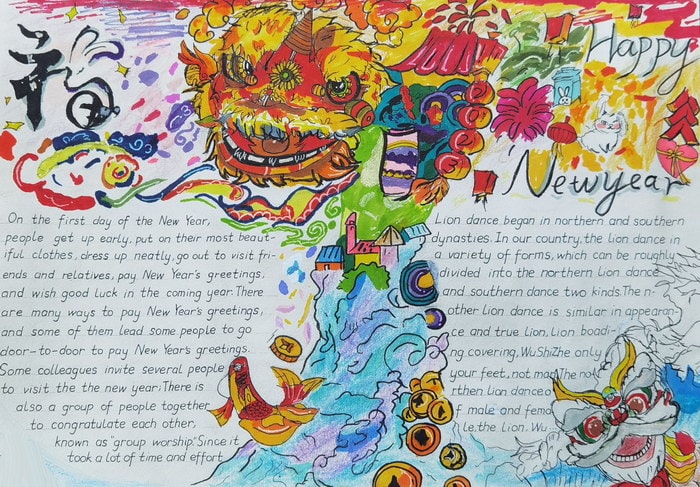 福
Happy
New year
On the first day of the New Year,
people get up early, put on their most beaut-
iful clothes, dress up neatly, go out to visit fri-
ends and relatives, pay New Year's greetings,
and wish good luck in the coming year. There
are many ways to pay New Year's greetings,
and some of them lead some people to go
door-to-door to pay New Year's greetings.
Some colleagues invite several people
to visit the the new year; There is
also a group of people together
to congratulate each other,
known as "group worship." Since it
took a lot of time and effort
Lion dance began in northern and southern
dynasties. In our country, the lion dance in
a variety of forms, which can be roughly
divided into the northern lion dance
and southern dance two kinds. The n-
other lion dance is similar in appearan-
ce and true lion, Lion boadi-
ng covering, WuShiZhe only
your feet, not
The no
rthen lion dance o
f male and fema
le. the Lion, Wu